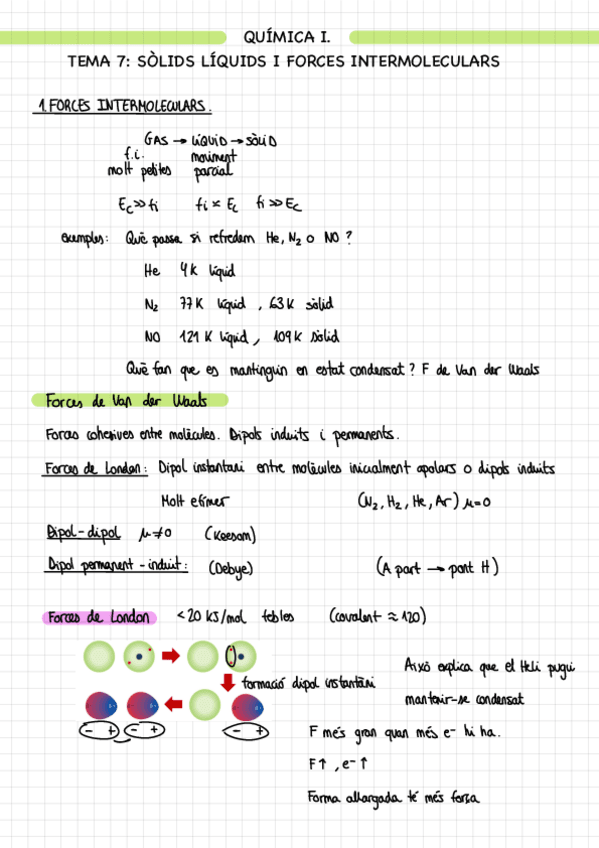 QUÍMICA I.
TEMA 7: SÒLIDS LÍQUIDS I FORCES INTERMOLECULARS
1. FORCES INTERMOLECULARS.
GAS → LÍQUID → SÒLID
f.i. moviment
molt petites parcial
Ec >> fi fi ≈ Ec fi >> Ec
exemples: Què passa si refredem He, N₂ o NO ?
He 4K líquid
N₂ 77K líquid , 63K sòlid
NO 121 K líquid, 109K sòlid
Què fan que es mantinguin en estat condensat? F de Van der Waals
Forces de Van der Waals
Forces cohesives entre molècules. Dipols induits i permanents.
Forces de London: Dipol instantani entre molècules inicialment apolars o dipols induits
Molt efímer (N₂, H₂, He, Ar) μ=0
Dipol-dipol μ≠0 (Keesom)
Dipol permanent - induït: (Debye) (A part → pont H)
Forces de London <20 KJ/mol febles (covalent ≈ 120)
Això explica que el Heli pugui
formació dipol instantàni
mantenir-se condensat
- + - + - +
F més gran quan més e⁻ hi ha.
F↑ , e⁻↑
Forma allargada té més força